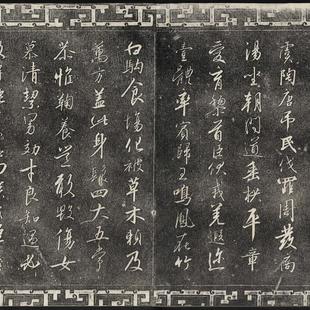 虞陶唐吊民伐罪周發商
湯坐朝問道垂拱平章
愛育黎首臣伏戎羌遐迩
壹體率賓歸王鳴鳳在竹
白駒食場化被草木賴及
萬方蓋此身髮四大五常
恭惟鞠養豈敢毀傷女
慕清絜男効才良知過必